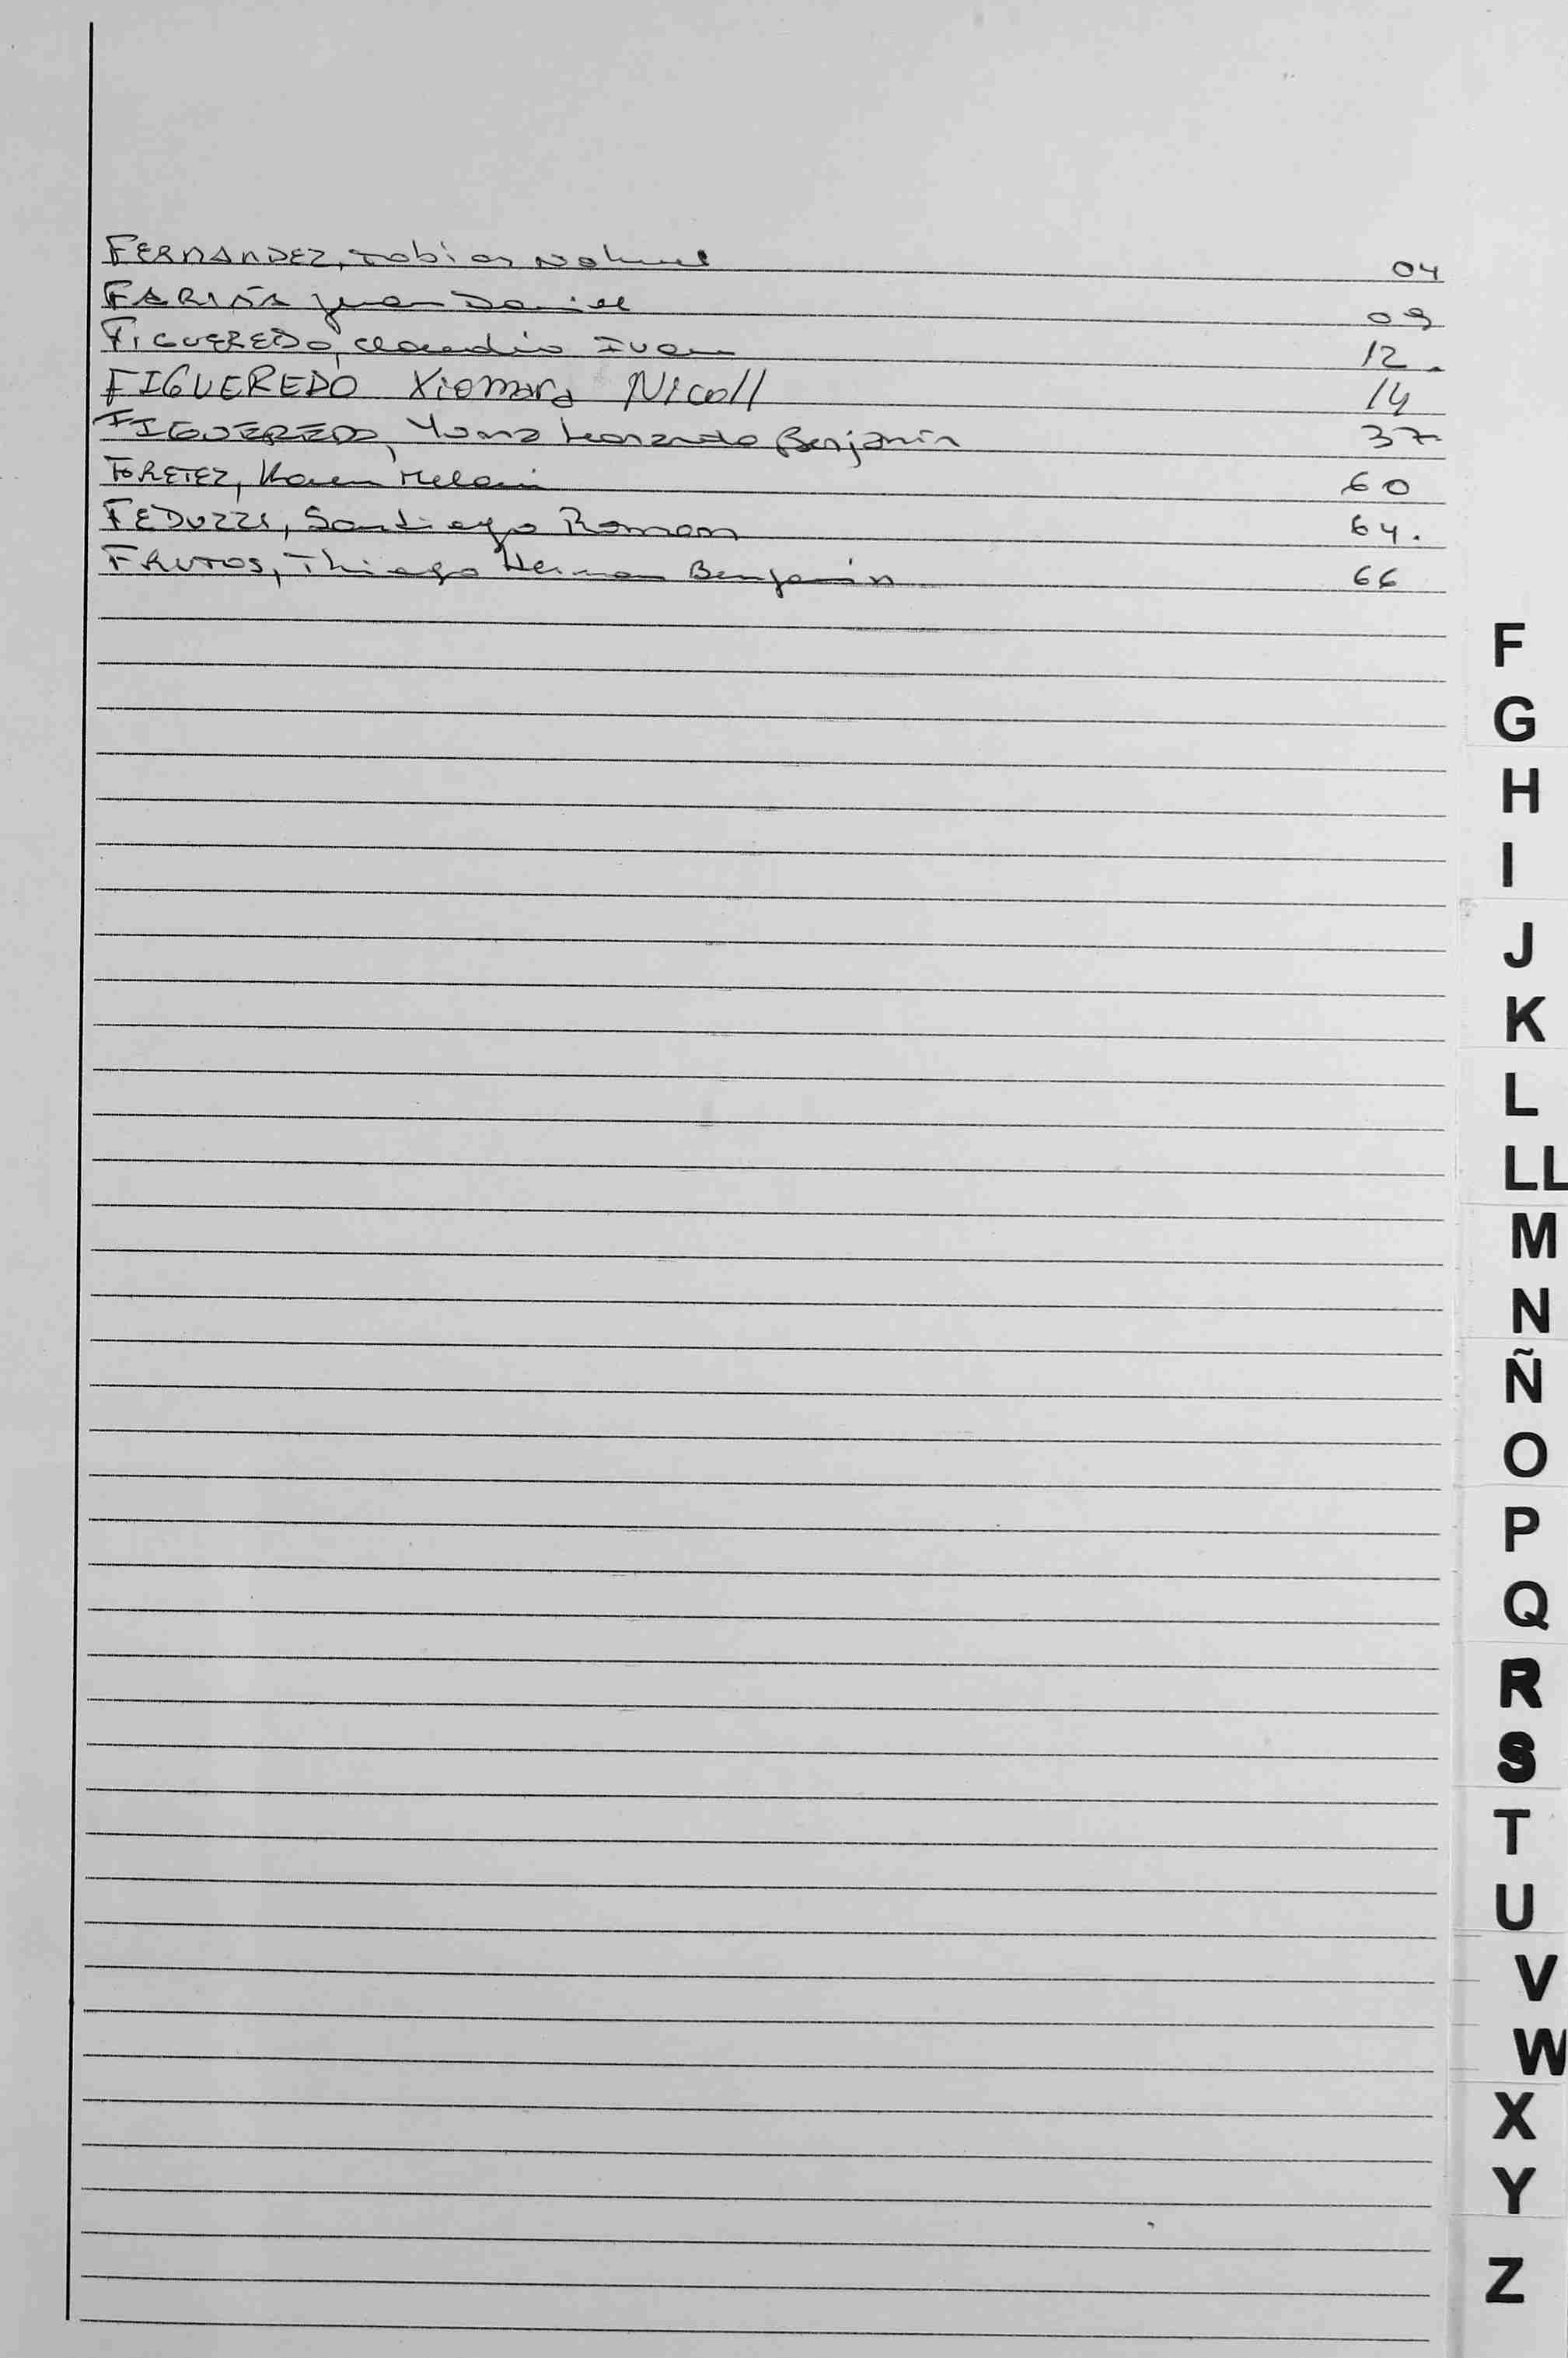 FERNANDEZ, Tobias Nahuel 04
FARIÑA Juan Daniel 09
FIGUEREDO, Claudio Ivan 12.
FIGUEREDO Xiomara Nicoll 14
FIGUEREDO, Leonardo Benjamín 37
FORETEZ, Karen Melani 60
FEDUZZI, Santiago Roman 64.
FRUTOS, Thiago Hernan Benjamín 66
F
G
H
I
J
K
L
LL
M
N
Ñ
O
P
Q
R
S
T
U
V
W
X
Y
Z